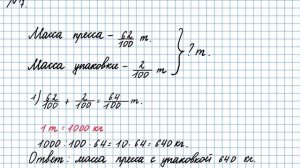 Масса пресса – 62/100 т.
Масса упаковки – 2/100 т } ? т.
1) 62/100 + 2/100 = 64/100 т.
1 т = 1000 кг
1000 : 100 · 64 = 10 · 64 = 640 кг.
Ответ: масса пресса с упаковкой 640 кг.